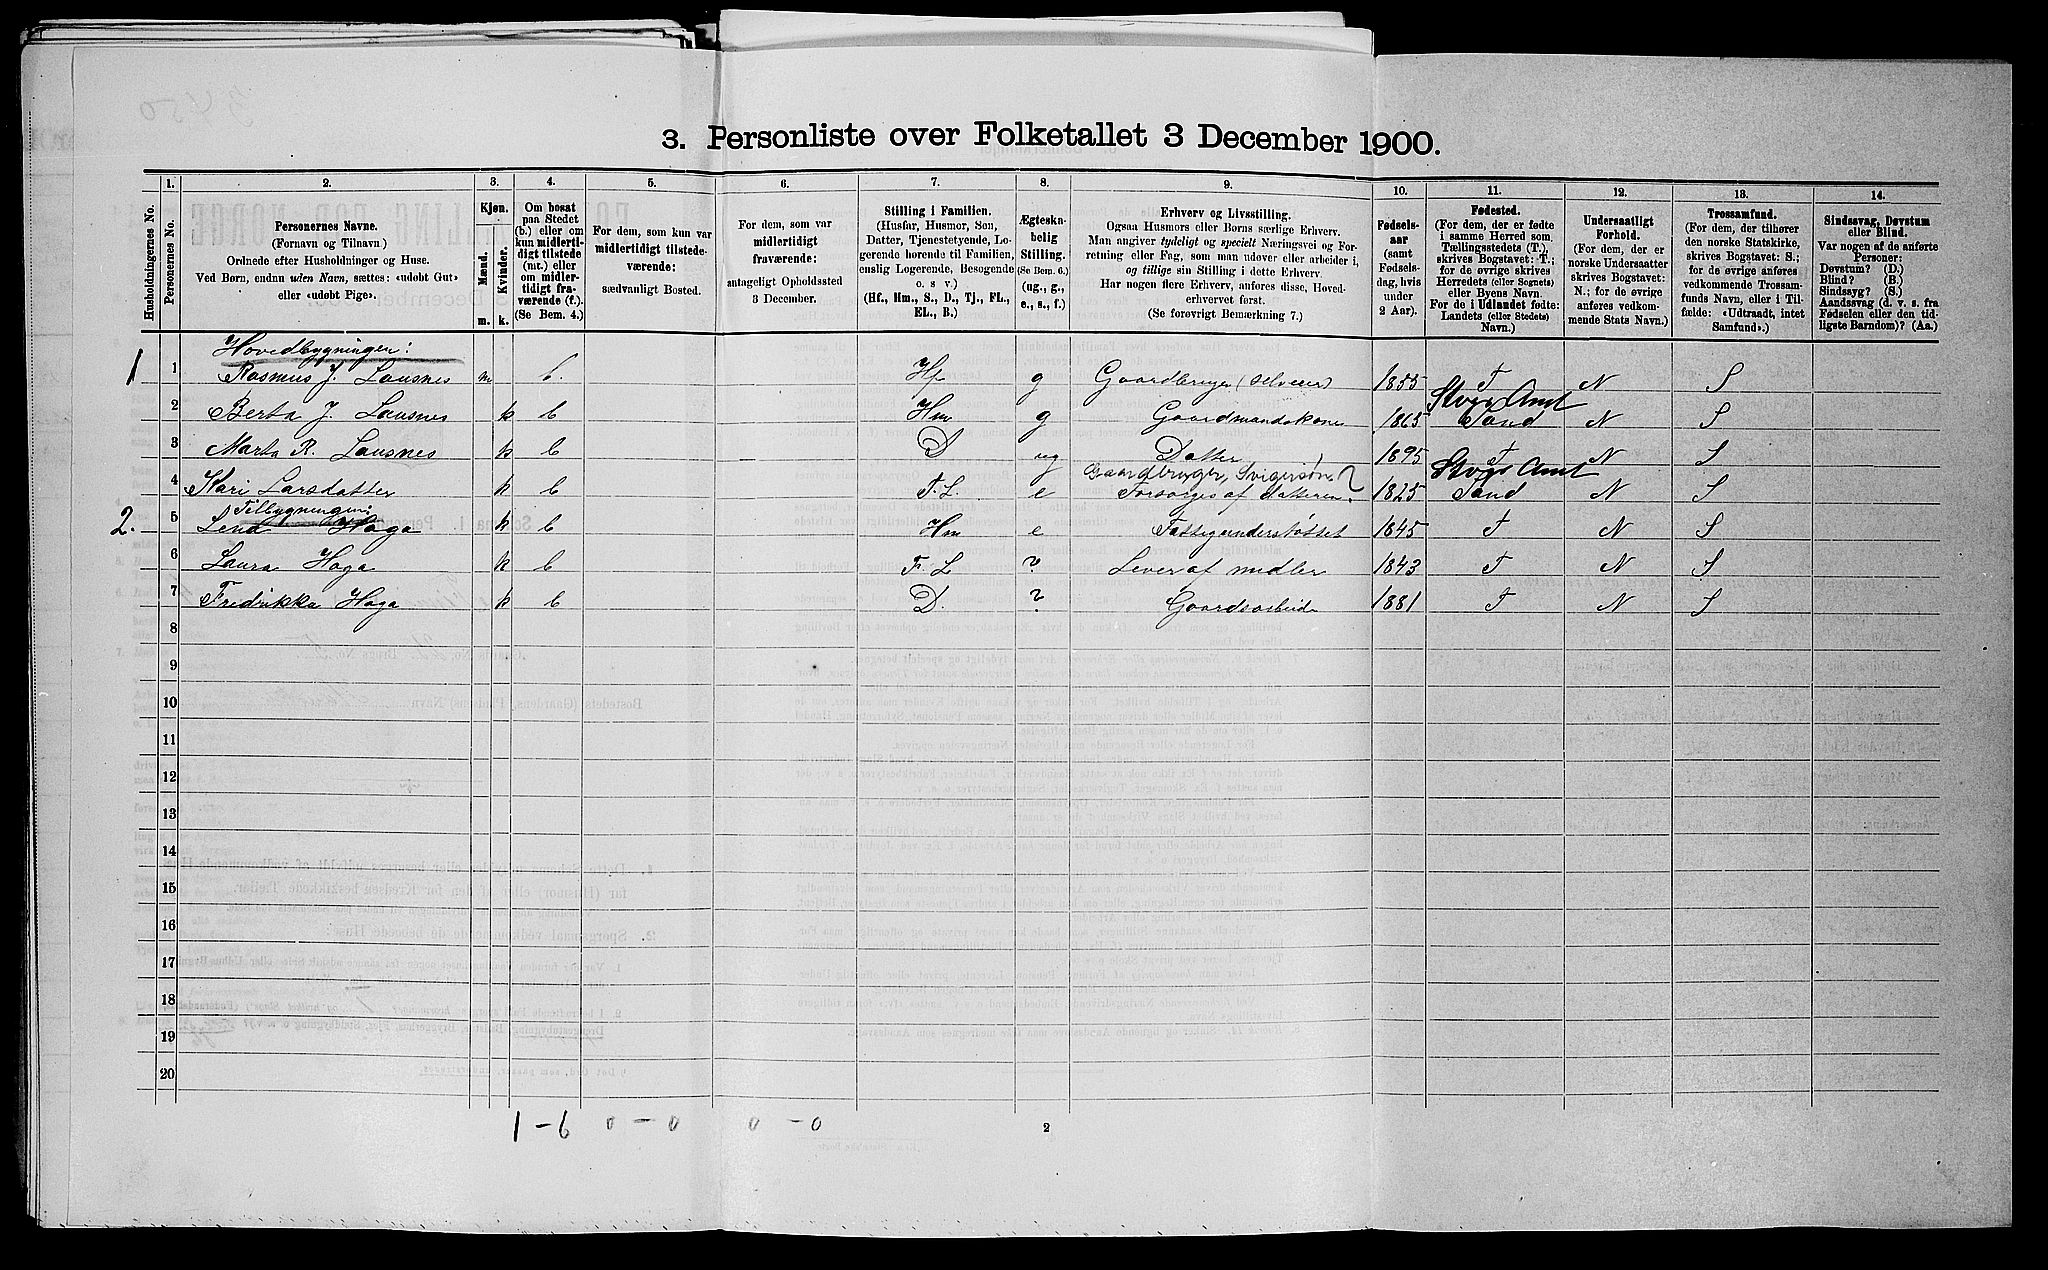 3. Personliste over Folketallet 3 December 1900.
1. 2. 3. 4. 5. 6. 7. 8. 9. 10. 11. 12. 13. 14.
Husholdningernes No.
Personernes No.
Personernes Navne.
(Fornavn og Tilnavn.)
Ordnede efter Husholdninger og Huse.
Ved Børn, endnu uden Navn, sættes: «udøbt Gut»
eller «udøbt Pige».
Kjøn.
Mænd.
Kvinder.
m. k.
Om bosat
paa Stedet
(b.) eller om
kun midlerti-
digt tilstede
(mt.) eller
om midler-
tidigt fra-
værende (f.).
(Se Bem. 4.)
For dem, som kun var
midlertidigt tilstede-
værende:
sædvanligt Bosted.
For dem, som var
midlertidigt
fraværende:
antageligt Opholdssted
3 December.
Stilling i Familien.
(Husfar, Husmor, Søn,
Datter, Tjenestetyende, Lo-
gerende hørende til Familien,
enslig Logerende, Besøgende
o. s v.)
(Hf., Hm., S., D., Tj., FL.,
EL., B.)
Ægteska-
belig
Stilling.
(Se Bem. 6.)
(ug., g.,
e., s., f.)
Erhverv og Livsstilling.
Ogsaa Husmors eller Børns særlige Erhverv.
Man angiver tydeligt og specielt Næringsvei og For-
retning eller Fag, som man udøver eller arbeider i,
og tillige sin Stilling i dette Erhverv.
Har nogen flere Erhverv, anføres disse, Hoved-
erhvervet først.
(Se forøvrigt Bemærkning 7.)
Fødsels-
aar
(samt
Fødsels-
dag, hvis
under
2 Aar).
Fødested.
(For dem, der er fødte
i samme Herred som
Tællingsstedets (T.),
skrives Bogstavet: T.;
for de øvrige skrives
Herredets (eller Sognets)
eller Byens Navn.
For de i Udlandet fødte:
Landets (eller Stedets)
Navn.)
Undersaatligt
Forhold.
(For dem, der er
norske Undersaatter
skrives Bogstavet:
N.; for de øvrige
anføres vedkom-
mende Stats Navn.)
Trossamfund.
(For dem, der tilhører
den norske Statskirke,
skrives Bogstavet: S.;
for de øvrige anføres
vedkommende Trossam-
funds Navn, eller i Til-
fælde: «Udtraadt, intet
Samfund».)
Sindssvag, Døvstum
eller Blind.
Var nogen af de anførte
Personer:
Døvstum? (D.)
Blind? (B.)
Sindssyg? (S.)
Aandssvag (d. v. s. fra
Fødselen eller den tid-
ligste Barndom)? (Aa.)
Hovedbygningen:
1 1 Rasmus J. Lausnes m b. Hf g Gaardbruger (selveier) 1855 T N S
Stvgr Amt
2 Berta J. Lausnes k b Hm g Gaardmandskone 1865 Sand N S
3 Marta R. Lausnes k b D ug Datter 1895 T N S
Gaardbruger, Svigersøn ? Stvgr Amt
4 Kari Larsdatter k b F. L. e Forsørges af datteren. 1825 Sand N S
Tilbygningen:
2. 5 Lena Haga k b Hm e Fattigunderstøttet 1845 T N S
6 Laura Haga k b F. L ? Lever af midler 1843 T N S
7 Fredrikka Haga k b D. ? Gaardsarbeid 1881 T N S
8
9
10
11
12
13
14
15
16
17
18
19
20
1 - 6 0 - 0 0 - 0 2